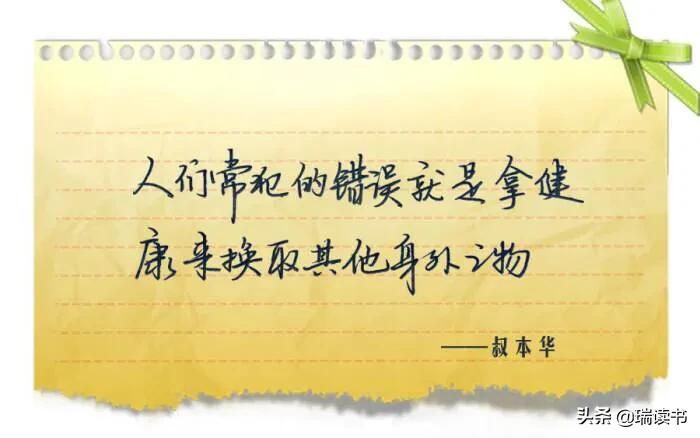 人们常犯的错误就是拿健
康来换取其他身外之物
——叔本华
头条 @瑞读书